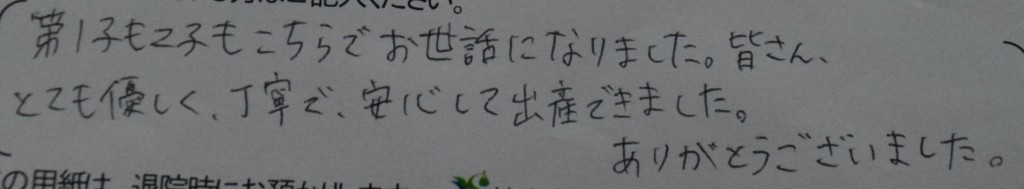 ください。
第1子も2子もこちらでお世話になりました。皆さん、
とても優しく、丁寧で、安心して出産できました。
ありがとうございました。
の用紙は、退院時にお預かりします